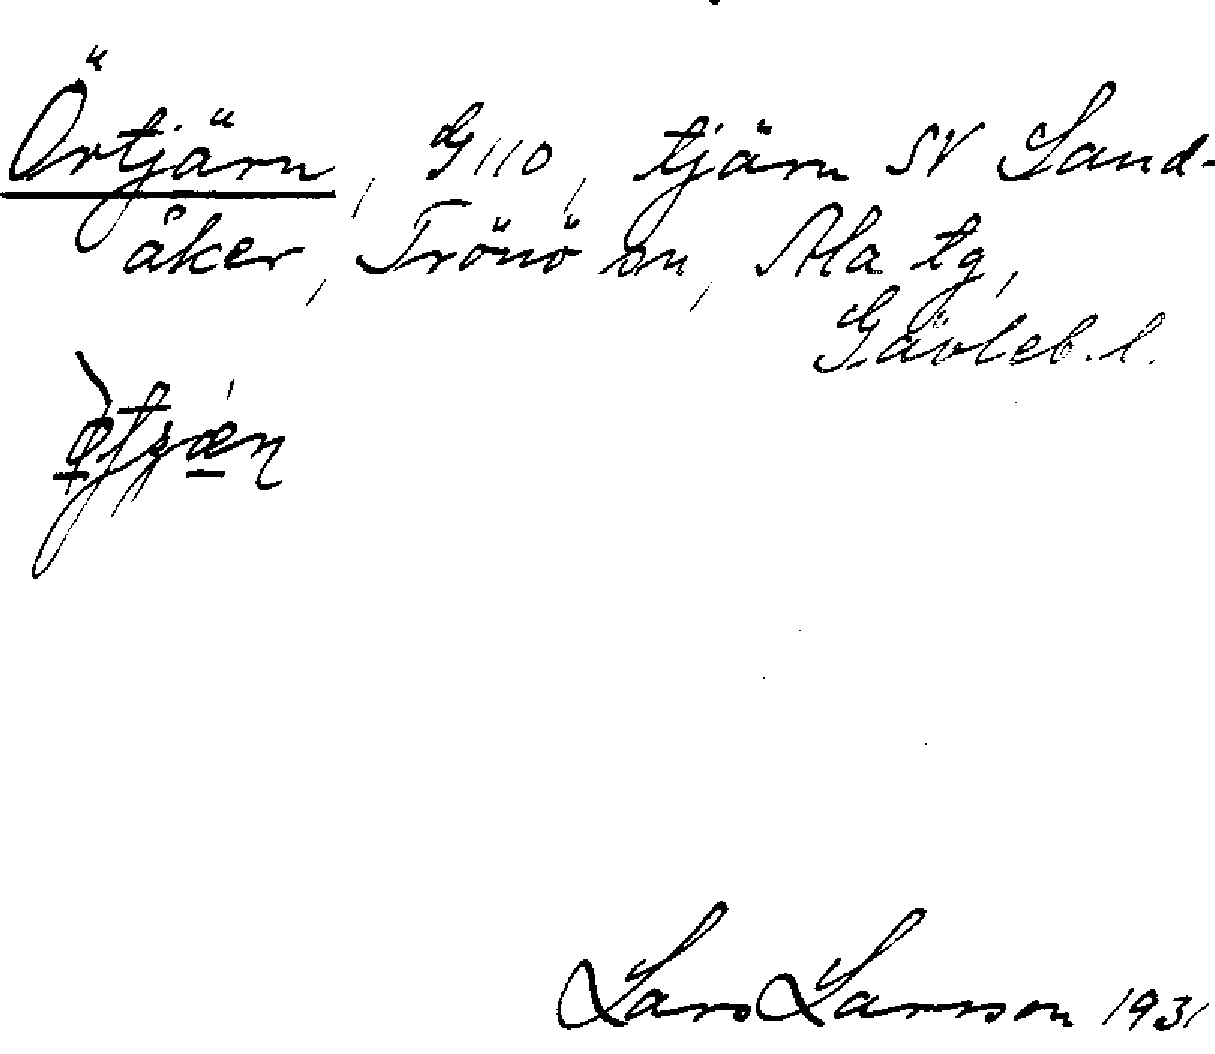 Örtjärn, G 110, tjärn SV Sand-
åker, Trönö sn, Ala tg,
Gävleb. l.
Lars Larsson 1931